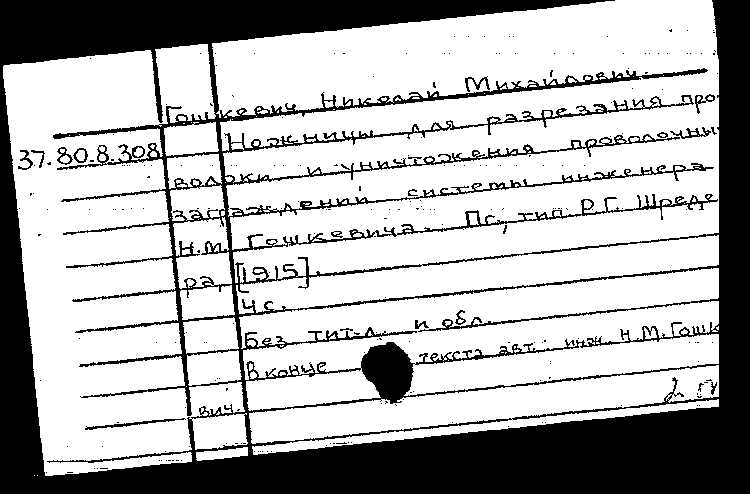 Гошкевич, Николай Михайлович.
37.80.8.308 Ножницы для разрезания про-
волоки и уничтожения проволочны
заграждений системы инженера
Н.М. Гошкевича. Пг., тип. Р.Г. Шреде
ра, [1915].
4 с.
Без тит. л. и обл.
В конце текста авт.: инж. Н.М. Гошк
вич.